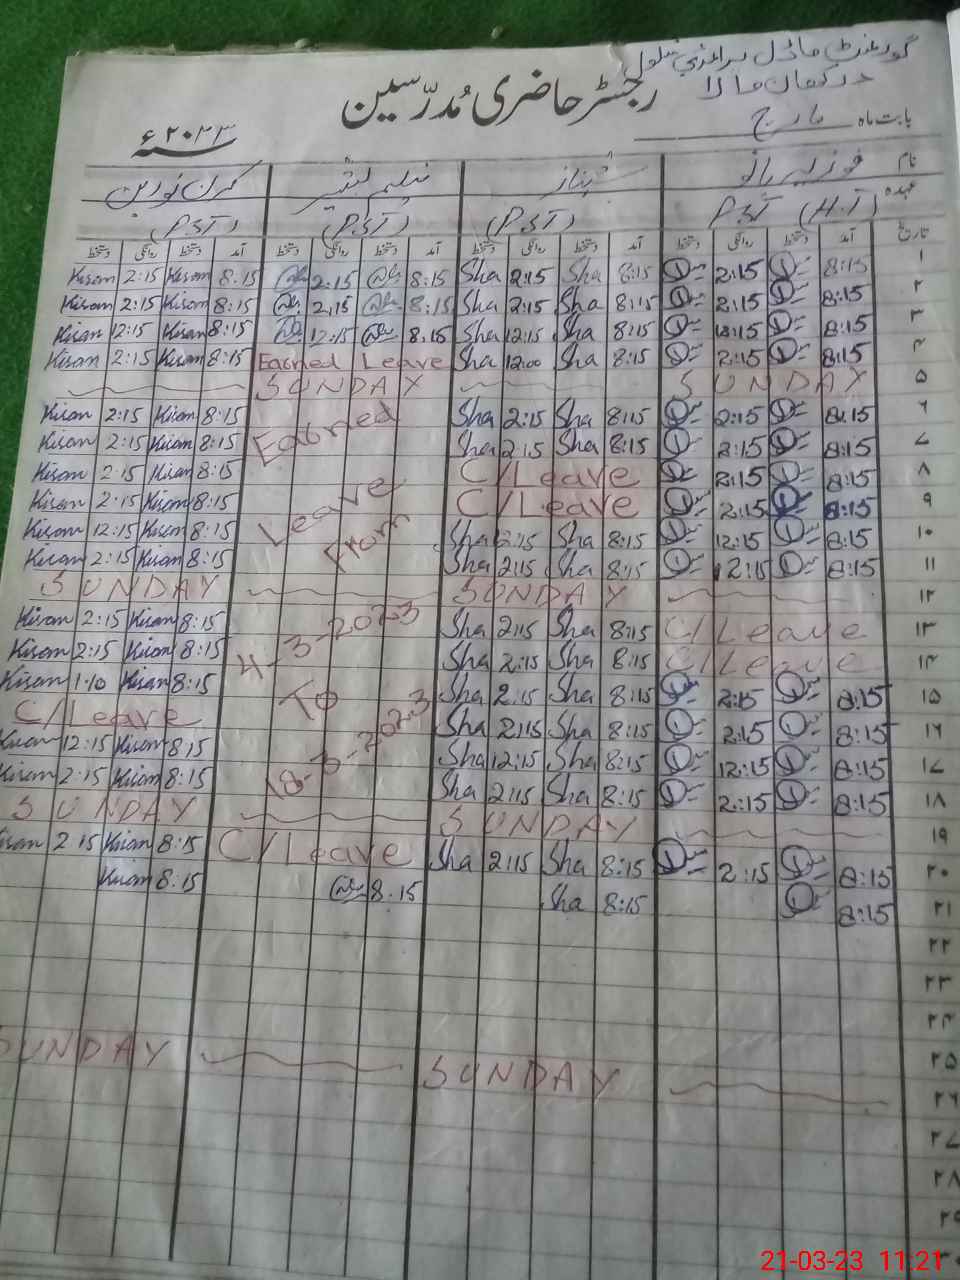 گورنمنٹ ماڈل پرائمری سکول
درکھان والا
رجسٹر حاضری مُدرّسین
بابت ماہ مارچ ۲۰۲۳ء
نام فوزیہ بانو شہناز نیلم بشیر کرن نورین
عہدہ PST (H.T) (PST) (PST) (PST)
تاریخ آمد دستخط روانگی دستخط آمد دستخط روانگی دستخط آمد دستخط روانگی دستخط آمد دستخط روانگی دستخط
۱ 8:15 2:15 8:15 Sha 2:15 Sha 8:15 2:15 8:15 Kiran 2:15 Kiran
۲ 8:15 2:15 8:15 Sha 2:15 Sha 8:15 2:15 8:15 Kiran 2:15 Kiran
۳ 8:15 12:15 8:15 Sha 12:15 Sha 8:15 12:15 8:15 Kiran 12:15 Kiran
۴ 8:15 2:15 8:15 Sha 12:00 Sha Earned Leave 8:15 Kiran 2:15 Kiran
۵ SUNDAY SUNDAY
۶ 8:15 2:15 8:15 Sha 2:15 Sha Earned 8:15 Kiran 2:15 Kiran
۷ 8:15 2:15 8:15 Sha 2:15 Sha 8:15 Kiran 2:15 Kiran
۸ 8:15 2:15 C/Leave Leave 8:15 Kiran 2:15 Kiran
۹ 8:15 2:15 C/Leave From 8:15 Kiran 2:15 Kiran
۱۰ 8:15 12:15 8:15 Sha Sha 8:15 Kiran 12:15 Kiran
۱۱ 8:15 2:15 8:15 Sha 2:15 Sha 8:15 Kiran 2:15 Kiran
۱۲ SUNDAY SUNDAY
۱۳ C/Leave 8:15 Sha 2:15 Sha 4-3-2023 8:15 Kiran 2:15 Kiran
۱۴ C/Leave 8:15 Sha 2:15 Sha 8:15 Kiran 2:15 Kiran
۱۵ 8:15 2:15 8:15 Sha 2:15 Sha To 8:15 Kiran 1:10 Kiran
۱۶ 8:15 2:15 8:15 Sha 2:15 Sha 18-3-2023 C/Leave
۱۷ 8:15 12:15 8:15 Sha 12:15 Sha 8:15 Kiran 12:15 Kiran
۱۸ 8:15 2:15 8:15 Sha 2:15 Sha 8:15 Kiran 2:15 Kiran
۱۹ SUNDAY SUNDAY
۲۰ 8:15 2:15 8:15 Sha 2:15 Sha C/Leave 8:15 Kiran 2:15 Kiran
۲۱ 8:15 8:15 Sha 8:15 8:15 Kiran
۲۲
۲۳
۲۴
۲۵
۲۶ SUNDAY SUNDAY
۲۷
۲۸
۲۹
21-03-23 11:21